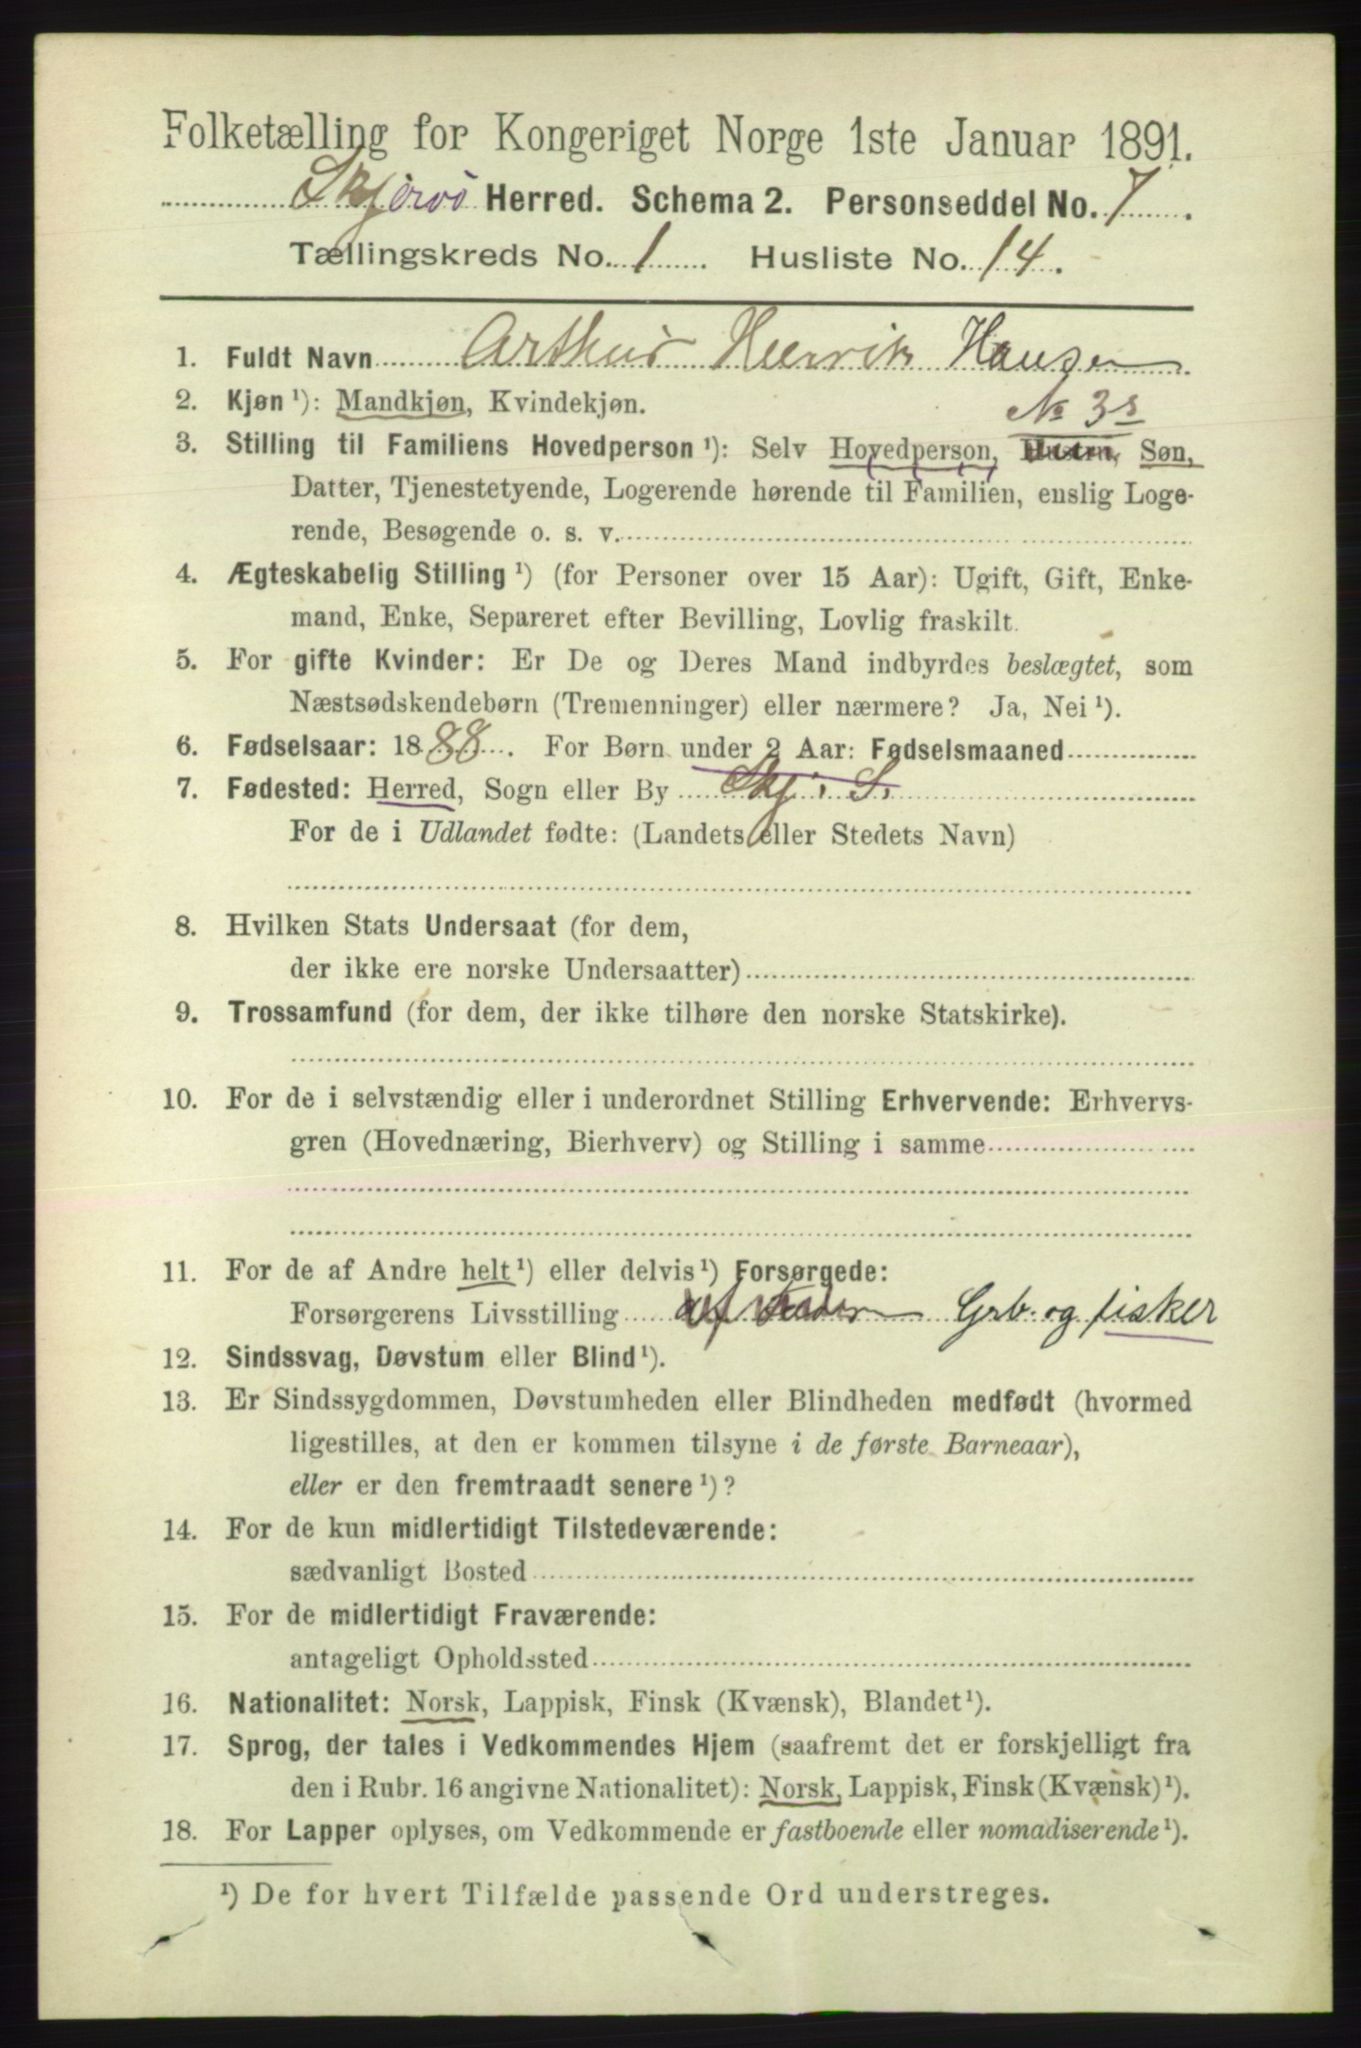 Folketælling for Kongeriget Norge 1ste Januar 1891.
Skjervö Herred. Schema 2. Personseddel No. 7.
Tællingskreds No. 1 Husliste No. 14.
1. Fuldt Navn Arthur Henrik Hansen
2. Kjøn ¹): Mandkjøn, Kvindekjøn.
No 3s
3. Stilling til Familiens Hovedperson ¹): Selv Hovedperson, Hustru, Søn,
Datter, Tjenestetyende, Logerende hørende til Familien, enslig Loge-
rende, Besøgende o. s. v.
4. Ægteskabelig Stilling ¹) (for Personer over 15 Aar): Ugift, Gift, Enke-
mand, Enke, Separeret efter Bevilling, Lovlig fraskilt.
5. For gifte Kvinder: Er De og Deres Mand indbyrdes beslægtet, som
Næstsødskendebørn (Tremenninger) eller nærmere? Ja, Nei ¹).
6. Fødselsaar: 1888. For Børn under 2 Aar: Fødselsmaaned
7. Fødested: Herred, Sogn eller By Skj. S.
For de i Udlandet fødte: (Landets eller Stedets Navn)
8. Hvilken Stats Undersaat (for dem,
der ikke ere norske Undersaatter)
9. Trossamfund (for dem, der ikke tilhøre den norske Statskirke).
10. For de i selvstændig eller i underordnet Stilling Erhvervende: Erhvervs-
gren (Hovednæring, Bierhverv) og Stilling i samme
11. For de af Andre helt ¹) eller delvis ¹) Forsørgede:
Forsørgerens Livsstilling af Fader Grb. og fisker
12. Sindssvag, Døvstum eller Blind ¹).
13. Er Sindssygdommen, Døvstumheden eller Blindheden medfødt (hvormed
ligestilles, at den er kommen tilsyne i de første Barneaar),
eller er den fremtraadt senere ¹)?
14. For de kun midlertidigt Tilstedeværende:
sædvanligt Bosted
15. For de midlertidigt Fraværende:
antageligt Opholdssted
16. Nationalitet: Norsk, Lappisk, Finsk (Kvænsk), Blandet ¹).
17. Sprog, der tales i Vedkommendes Hjem (saafremt det er forskjelligt fra
den i Rubr. 16 angivne Nationalitet): Norsk, Lappisk, Finsk (Kvænsk) ¹).
18. For Lapper oplyses, om Vedkommende er fastboende eller nomadiserende ¹).
¹) De for hvert Tilfælde passende Ord understreges.